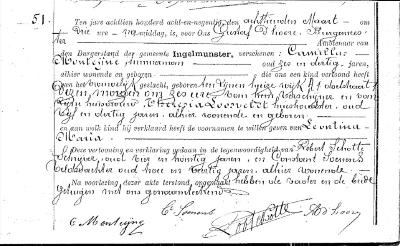 51.
Ten jare achttien honderd acht-en-negentig, den achttienden Maart om
drie ure na middag, is voor Ons Gustaf D'hoore, Burgemeester
Ambtenaar van
den Burgerstand der gemeente Ingelmunster, verschenen: Camillus
Monteijne oud zes en dertig jaren,
alhier wonende en geboren die ons een kind vertoond heeft
van het vrouwelijk geslacht, geboren ten zijnen huize wijk
dezen, morgen om zes ure van hem Verschijner en van
zijne huisvrouw Theresia Loosveldt oud
vijf en dertig jaren, alhier wonende en geboren
en aan welk kind hij verklaard heeft de voornamen te willen geven van Leontina
Maria
Deze vertooning en verklaring gedaan in de tegenwoordigheid van Robert Schotte
oud vier en twintig jaren, en Constant Somers
Veldwachter oud en veertig jaren, alhier wonende
Na voorlezing dezer akte terstond opgemaakt hebben de vader en de beide
getuigen met ons geteekend
C Monteijne C. Somers Rob Schotte G D'hoore